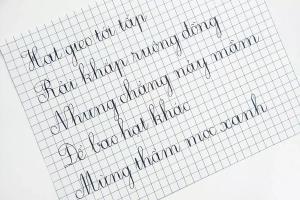 Hạt gieo tới tấp
Rải khắp ruộng đồng
Nhưng chẳng nảy mầm
Để bao hạt khác
Mừng thầm mọc xanh